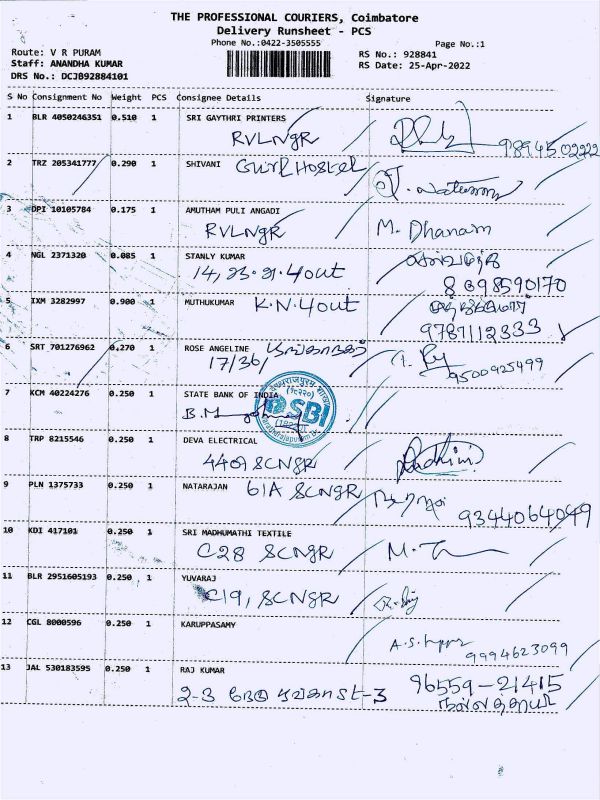 THE PROFESSIONAL COURIERS, Coimbatore
Delivery Runsheet - PCS
Phone No.:0422-3505555
Page No.:1
Route: V R PURAM
Staff: ANANDHA KUMAR
DRS No.: DCJB92884101
RS No.: 928841
RS Date: 25-Apr-2022
S No Consignment No Weight PCS Consignee Details Signature
1 BLR 4050246351 0.510 1 SRI GAYTHRI PRINTERS
RVLNgR 9894502222
2 TRZ 205341777 0.290 1 SHIVANI Gurl Hostel
3 DPI 10105784 0.175 1 AMUTHAM PULI ANGADI
RVLNgR M. Dhanam
4 NGL 2371320 0.085 1 STANLY KUMAR
8098590170
5 IXM 3282997 0.900 1 MUTHUKUMAR K.N.4out
9787112333
6 SRT 701276962 0.270 1 ROSE ANGELINE
17/36, 9500925499
7 KCM 40224276 0.250 1 STATE BANK OF INDIA
SBI
8 TRP 8215546 0.250 1 DEVA ELECTRICAL
SCNgR
9 PLN 1375733 0.250 1 NATARAJAN 61A SCNgR
9344064049
10 KDI 417101 0.250 1 SRI MADHUMATHI TEXTILE
C28 SCNgR
11 BLR 2951605193 0.250 1 YUVARAJ
C19, SCNgR
12 CGL 8000596 0.250 1 KARUPPASAMY
9994623099
13 JAL 530183595 0.250 1 RAJ KUMAR
96559-21415
2-3